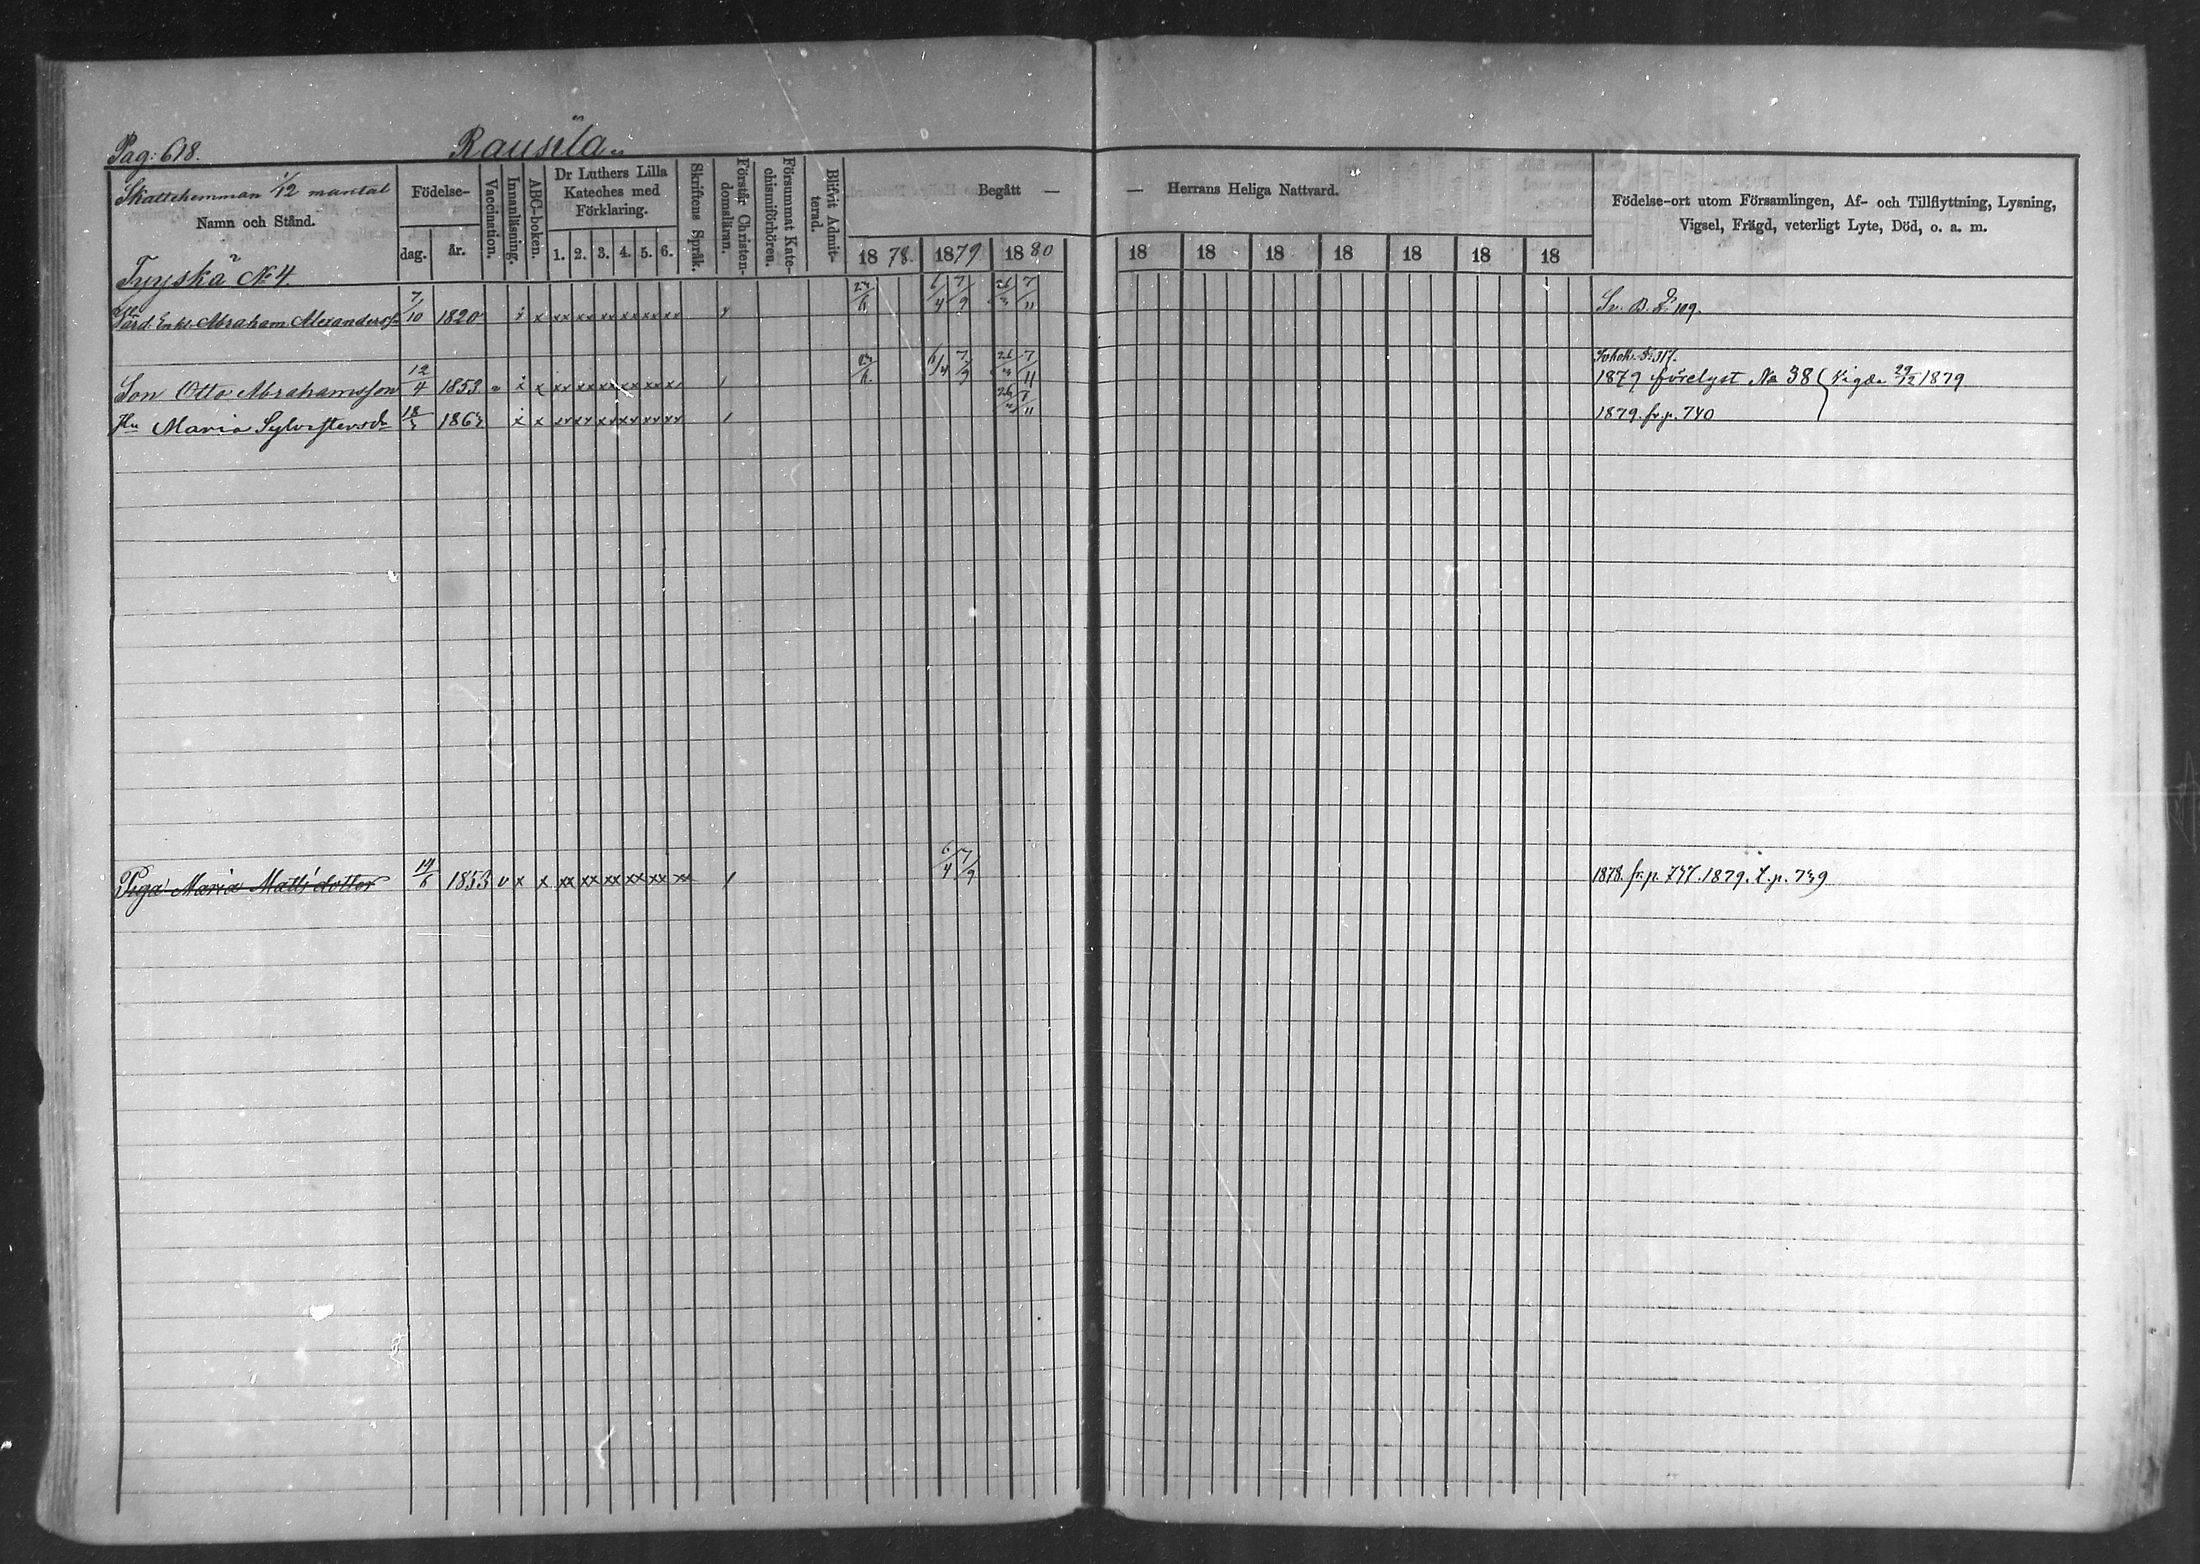 Pag: 618.
Rausela
Skattehemman 1/12 mantal
Namn och Stånd.
Födelse-
dag.
år.
Vaccination.
Innanläsning.
ABC-boken.
Dr Luthers Lilla
Kateches med
Förklaring.
1. 2. 3. 4. 5. 6.
Skriftens Språk.
Förstår Christen-
domsläran.
Försummat Kate-
chismiförhören.
Blifvit Admit-
terad.
Begått —
— Herrans Heliga Nattvard.
1878. 1879 1880
18 18 18 18 18 18 18
Födelse-ort utom Församlingen, Af- och Tillflyttning, Lysning,
Vigsel, Frägd, veterligt Lyte, Död, o. a. m.
Tyyskä No 4.
Enkl. Abraham Alexanderss 7/10 1820 x x xx xx xx xx xx xx 6/4 7/9 7/11 Sv. B. 109.
Son Otto Abrahamsson 12/4 1853 x x xx xx xx xx xx xx 6/4 7/9 7/11 1879 förelyst No 38 Vigde 29/12 1879
Hu Maria Sylvestersdr x x xx xx xx xx xx xx 1879. fr. p. 740
Piga Maria Mattsdotter 14/6 1853 v x x xx xx xx xx xx xx 6/4 7/9 1878. fr. p. 1879. t. p.